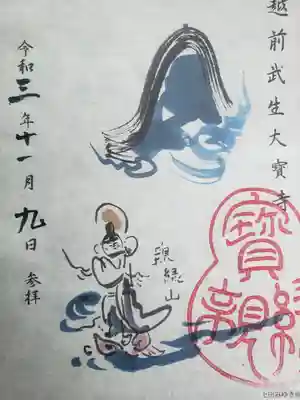 越前武生大寶寺
親縁山
寶
親縁
令和三年十一月九日 参拝